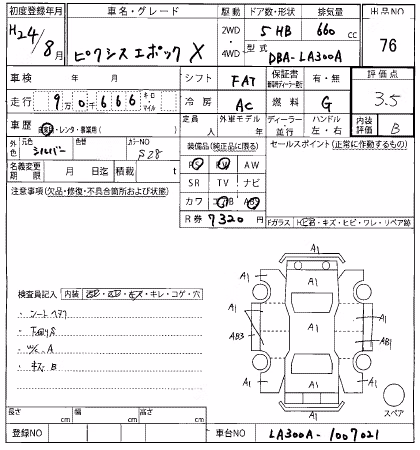 初度登録年月 車名・グレード 駆動 ドア数・形状 排気量 出品NO
H24/8月 ピクシスエポック X 2WD 4WD 5 HB 660 cc 76
型式 DBA-LA300A
車検 年 月 シフト FAT 保証書 有・無 評価点
走行 9万0千666 キロ・マイル 冷房 AC 燃料 G 3.5
車歴 自家用・レンタ・事業用( ) 定員 人 外車モデル 年 ディーラー・並行 ハンドル 左・右 内装評価 B
外色 元色 シルバー 色替 カラーNO S28 装備品(純正品に限る) セールスポイント(正常に作動するもの)
名義変更期限 月 日迄 積載 t PS PW AW
注意事項(欠品・修復・不具合箇所および状態) SR TV ナビ
カワ エアB ABS
R券 7320 円 Fガラス キズ・ヒビ・ワレ・リペア跡
A1
A1 A1
A1
A1 A1
AB3 AB1
A1 A1
A1
A1
検査員記入 内装 キレ・コゲ・穴
・シートヘタリ
・下回りS
・W/C. A
・キズ B
スペア
長さ cm 幅 cm 高さ cm
登録NO 車台NO LA300A-1007021